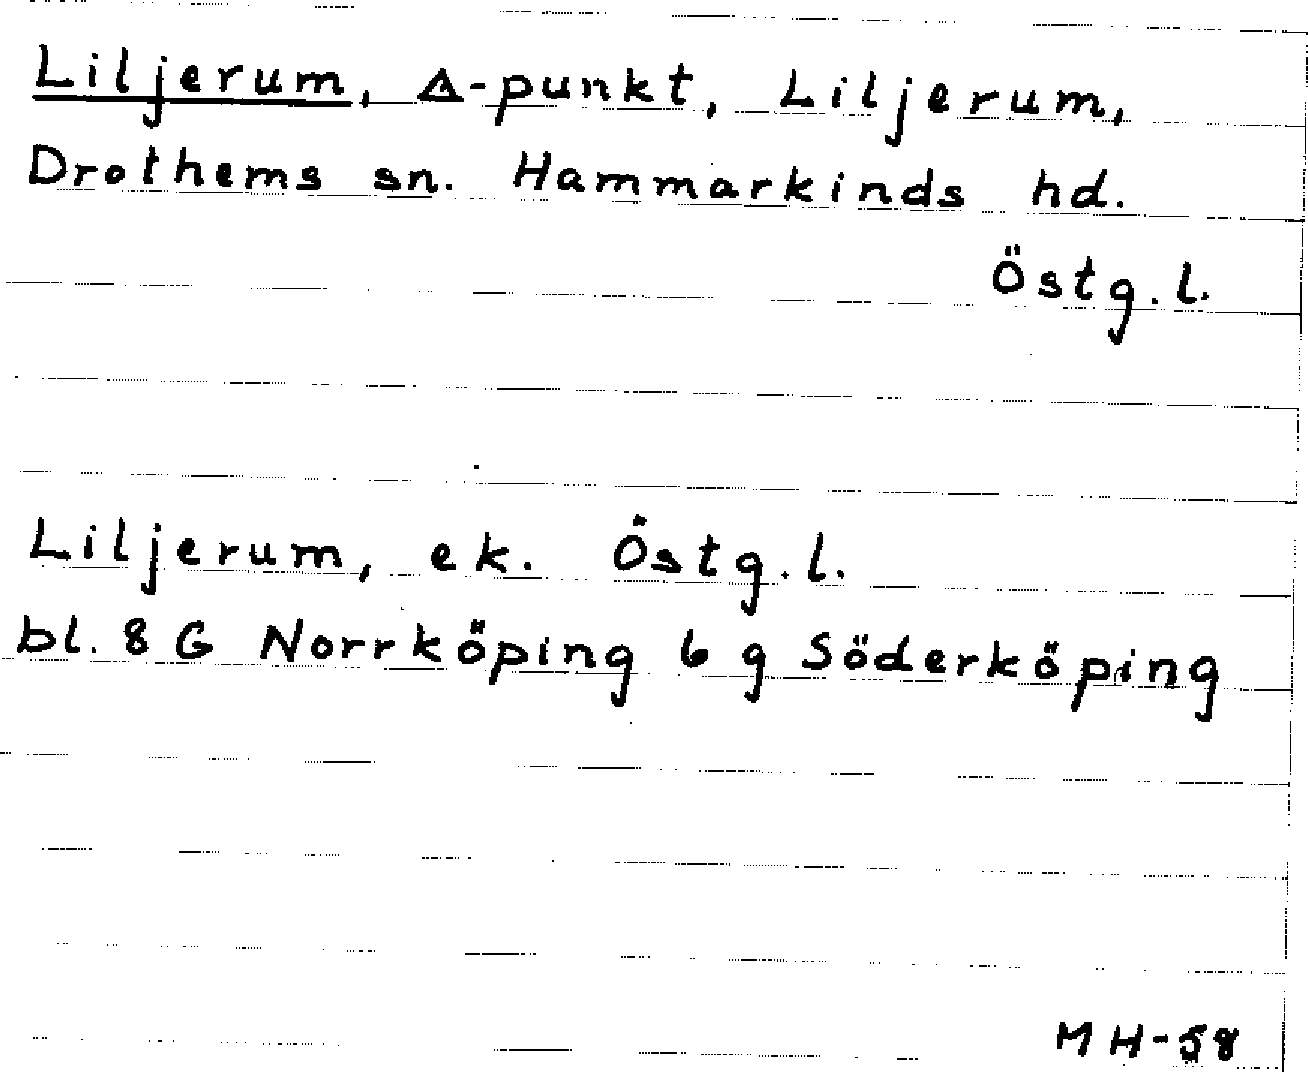 Liljerum, Δ-punkt, Liljerum,
Drothems sn. Hammarkinds hd.
Östg.l.
Liljerum, ek. Östg.l.
bl. 8 G Norrköping 6 g Söderköping
MH-58